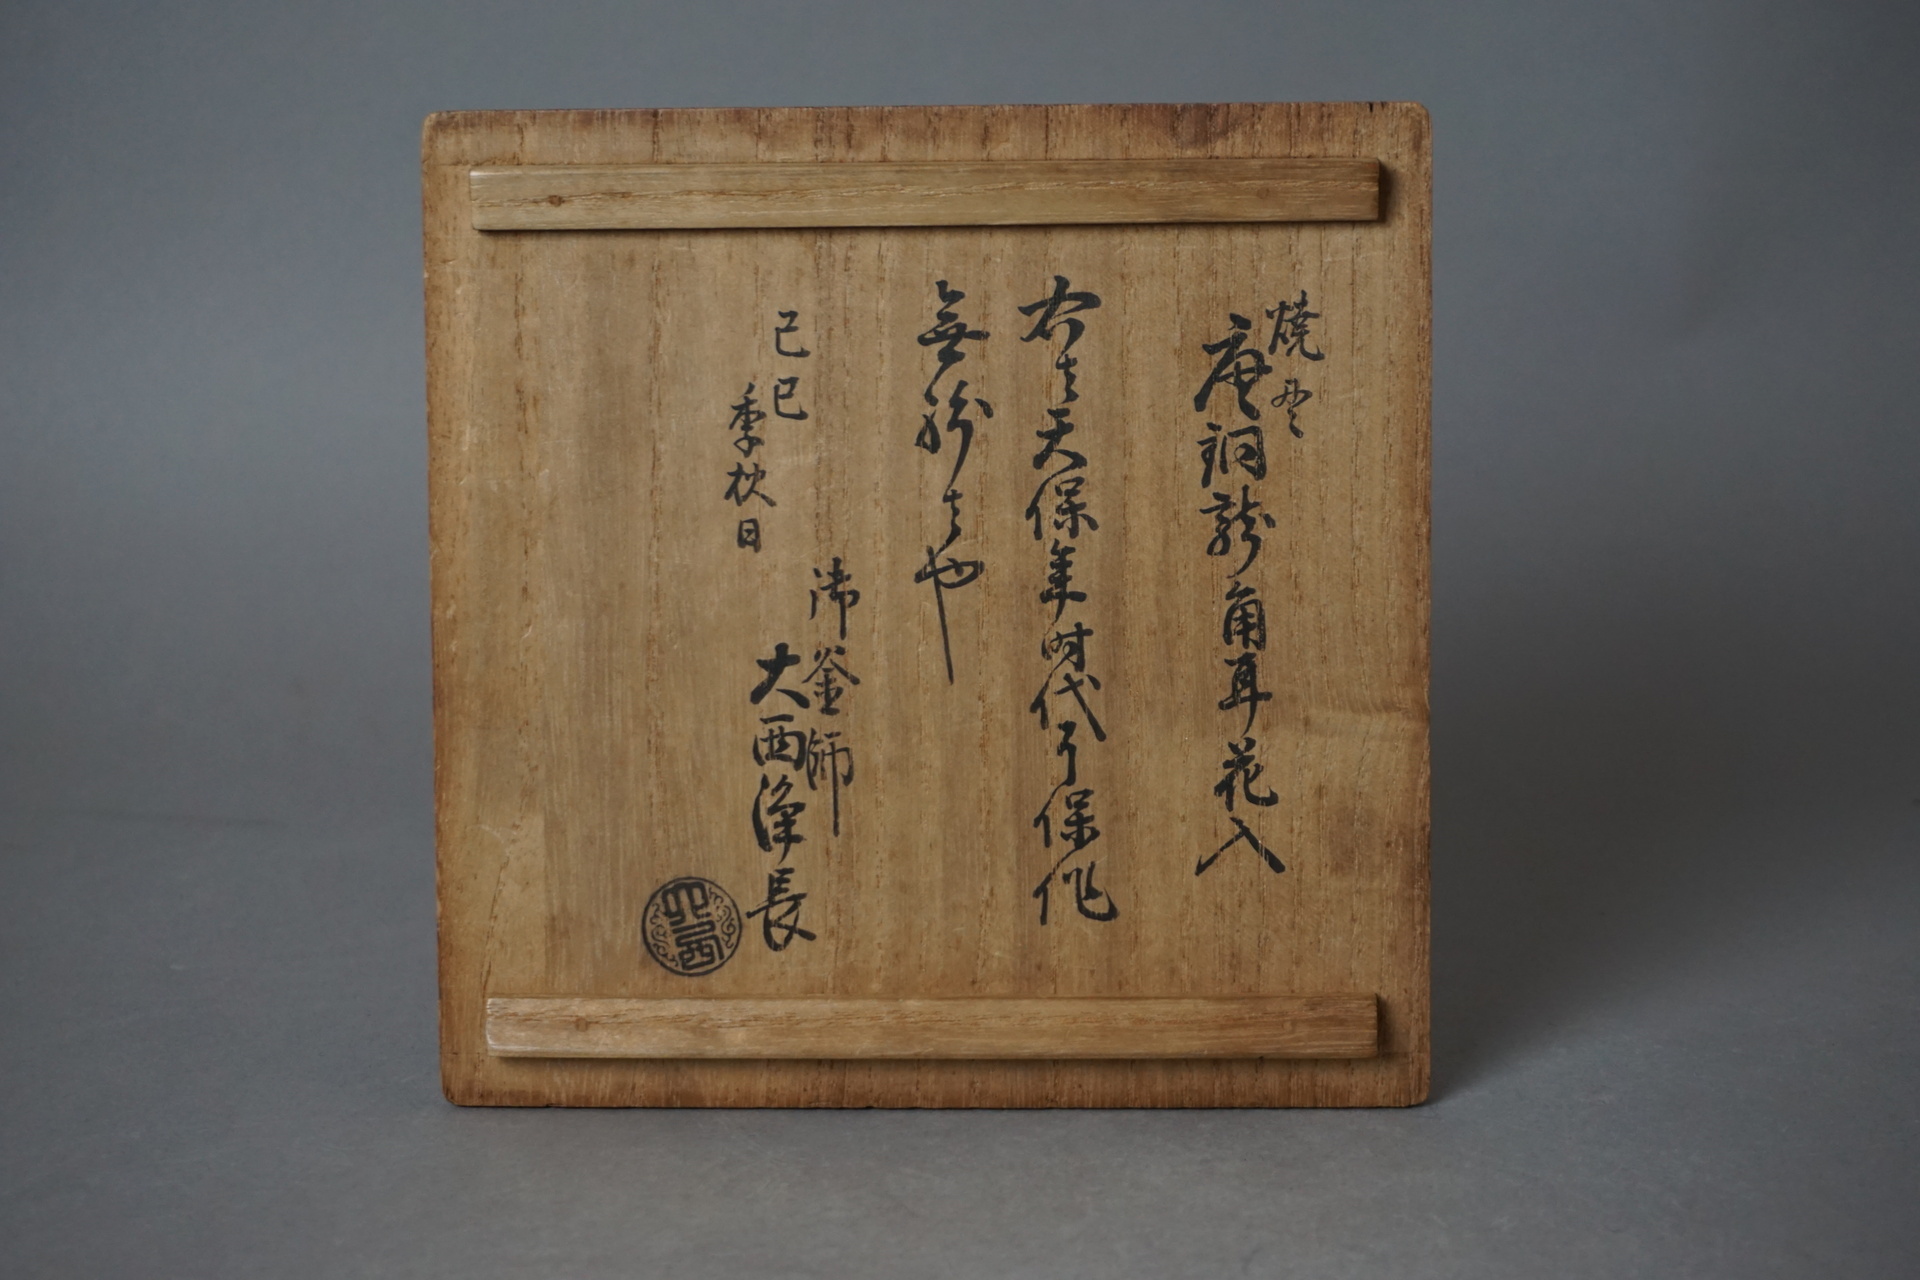 焼
唐銅龍角耳花入
右者天保年時代了保作
無紛者也
己巳
季秋日
御釜師
大西浄長
大西